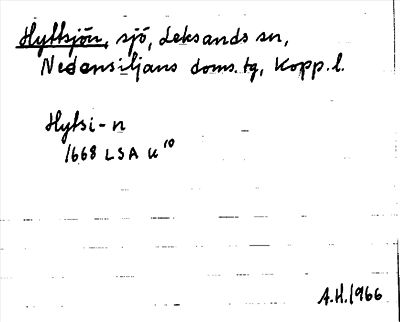 Hyttsjön, sjö, Leksands sn,
Nedansiljans doms.tg, Kopp.l.
Hytsi-n
1668 LSA U¹⁰
A.H. 1966